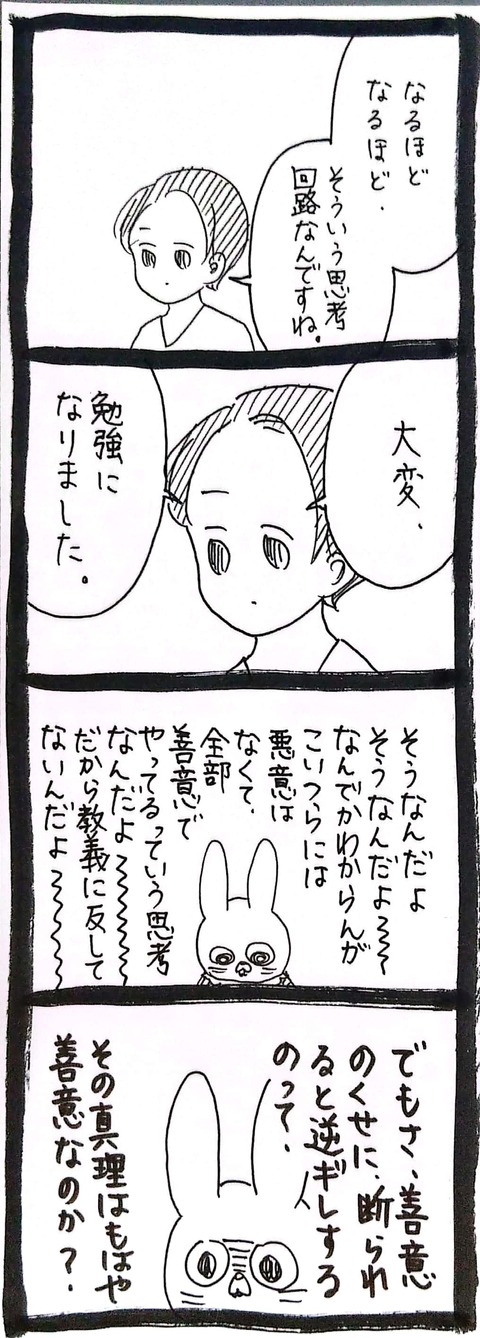 なるほど
なるほど．
そういう思考
回路なんですね。
大変、
勉強に
なりました。
そうなんだよ
そうなんだよ〜〜
なんでかわからんが
こいつらには
悪意は
なくて、
全部
善意で
やってるっていう思考
なんだよ〜〜〜〜
だから教義に反して
ないんだよ〜〜〜〜
でもさ、善意
のくせに、断られ
ると逆ギレする
のって、
その真理はもはや
善意なのか？．